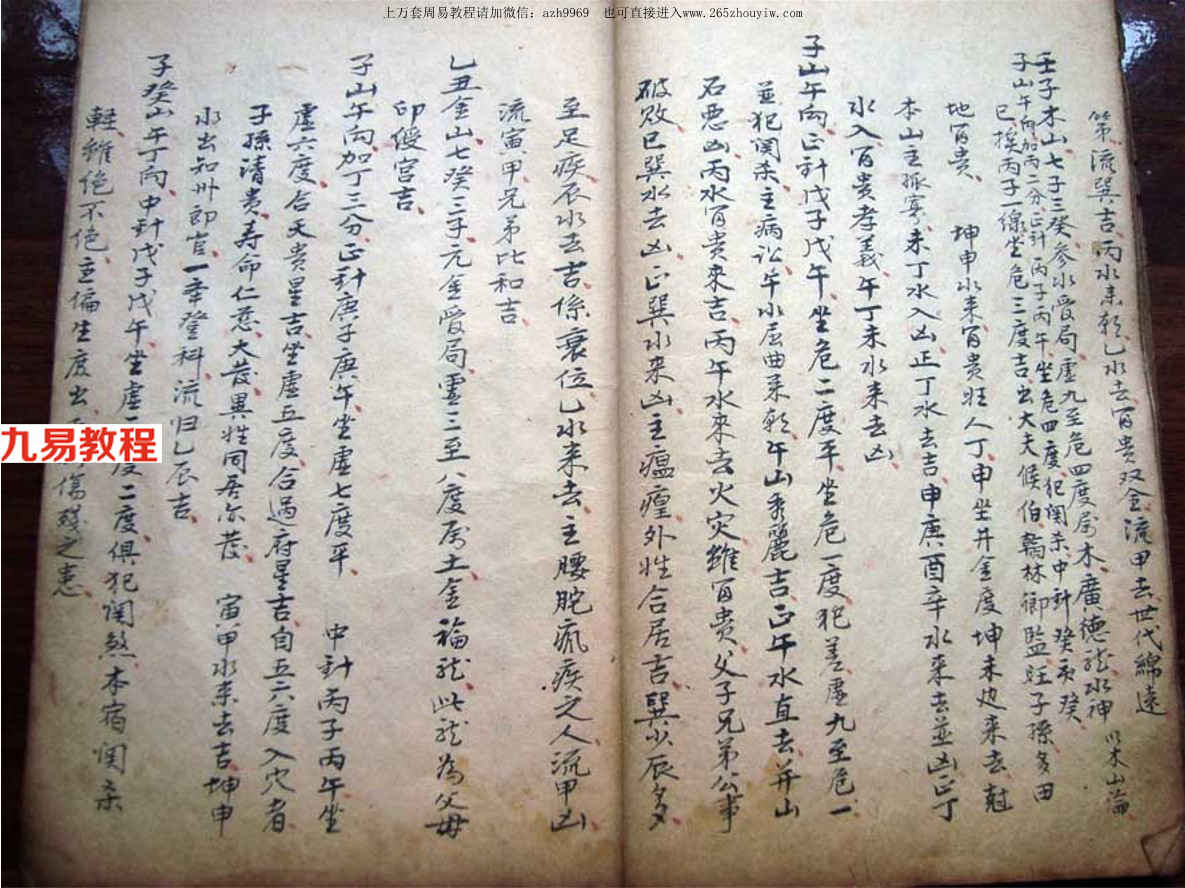 上万套周易教程请加微信：azh9969 也可直接进入www.265zhouyiw.com
第流巽吉丙水来乾乙水去百贵双全流甲去世代綿遠
壬子木山七子三癸参水受局虛九至危四度属木廣德龙水神 以木山論
子山午向加丙二分正針丙子丙午坐危四度犯関杀中針癸亥癸
巳挨丙子一線坐危三度吉出大夫候伯翰林卿監旺子孫多田
地百貴 坤申水来百贵旺人丁申坐井金度坤未边来去尅
本山主孤寡未丁水入凶正丁水去吉申庚酉辛水来去並凶正丁
水入百贵孝義午丁未水来去凶
子山午向正針戊子戊午坐危二度平坐危一度犯差虛九至危一
並犯関杀主病訟午水屈曲来乾午山秀麗吉正午水直去并山
石恶凶丙水百贵来吉丙午水來去火灾雖百贵父子兄弟公事
破敗巳巽水去凶正巽水来凶主瘟瘟外性合居吉巽少辰多
至足疾辰水去吉係衰位乙水来去主腰脆疯疾之人流甲凶
流寅甲兄弟比和吉
乙丑金山七癸三子元金受局虛二至八度属土金福龙此龙為父母
印绶宫吉
子山午向加丁三分正針庚子庚午坐虛七度平 中針丙子丙午坐
虛六度合天贵星吉坐虛五度合過府星吉自五六度入穴者
子孫清贵寿命仁慈大發異性同居亦發 寅甲水来去吉坤申
水出知州郎官一率登科流归乙辰吉
子癸山午丁向中針戊子戊午坐虛度二度俱犯関煞本宿関杀
軽雖绝不绝主偏生度出傷残之患
九易教程